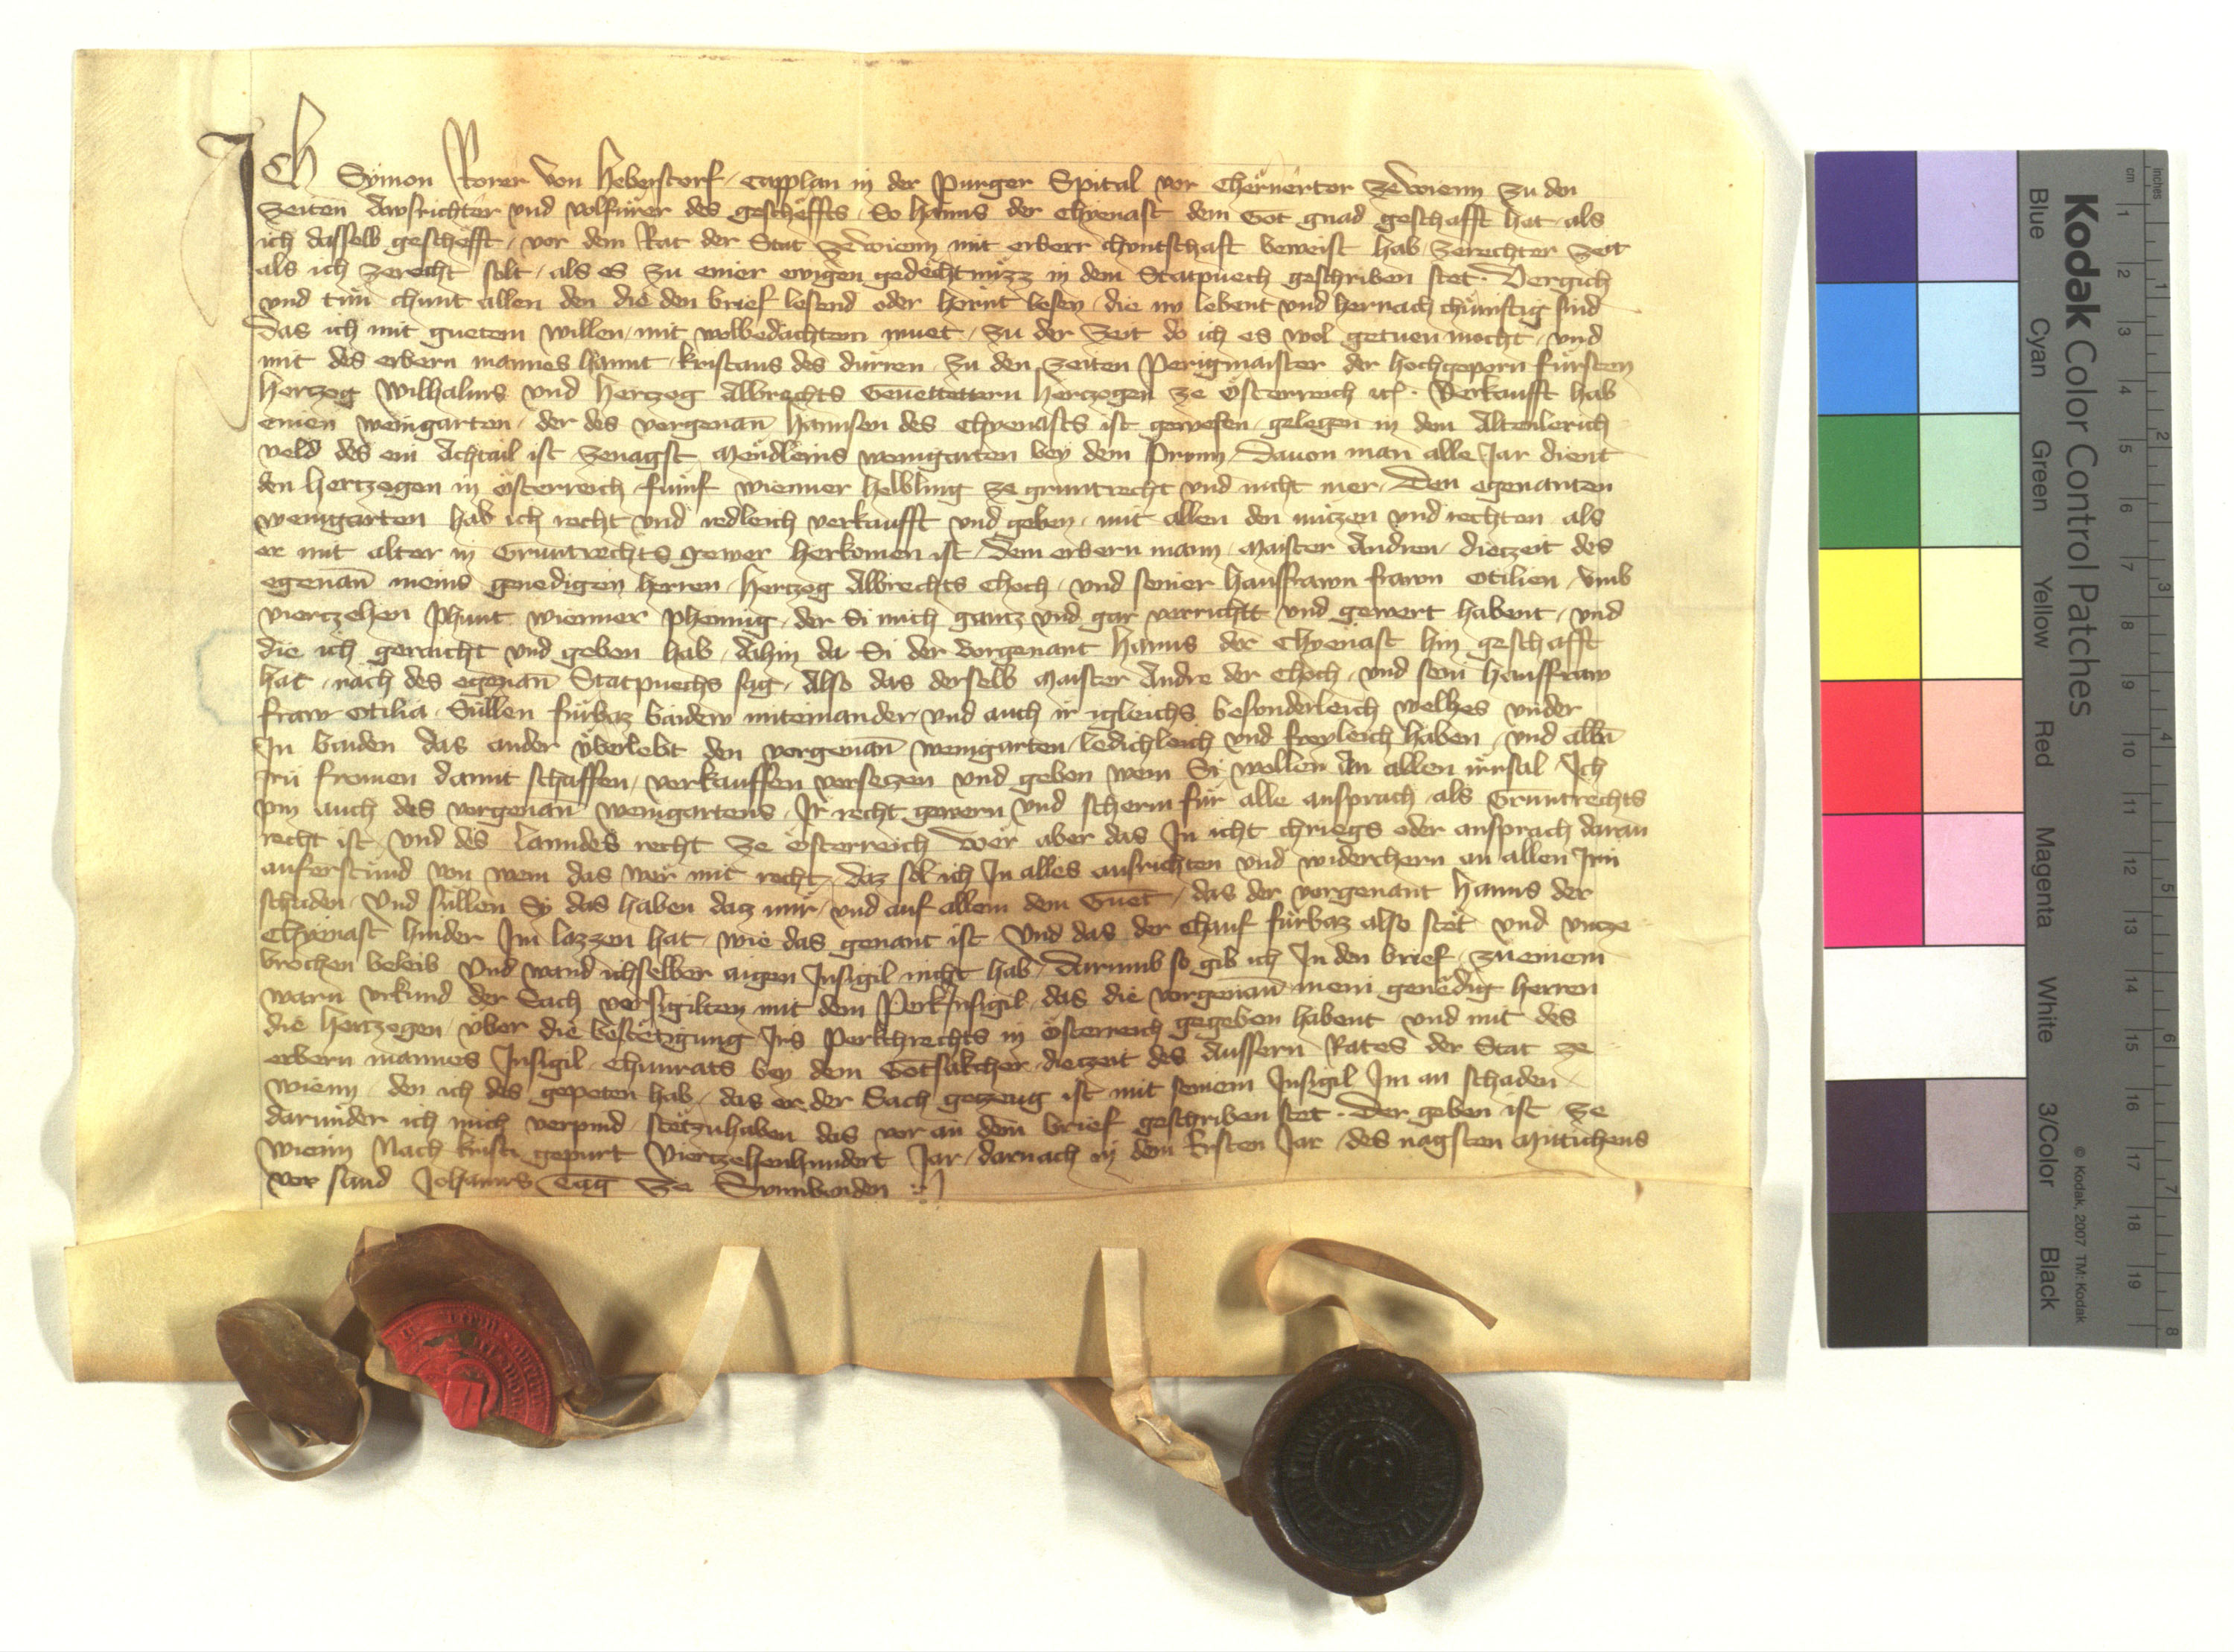 Ich Symon Rorer von Heberstorf Capplan in der Purger Spital vor Chërnertor zewienn zu den
zeiten Awsrichter vnd volfürer des geschëffts So Hanns der Chyenast dem Got gnad geschafft hat als
ich dasselb geschëfft vor dem Rat der Stat zewienn mit erberr chuntschaft beweist hab zerechter zeit
als ich zerecht solt als es zu einer ewigen gedëchtnüzz in dem Statpuech geschriben stet. Vergich
vnd tun chunt allen den die den brief lesent oder hörnt lesen die nv lebent vnd hernach chünftig sind
Das ich mit guetem willen mit wolbedachtem muet zu der zeit do ich es wol getuen mocht vnd
mit des erbern mannes hannt kristans des dürren zu den zeiten Perigmaister der hochgeporn fürsten
hertzog Wilhalms vnd hertzog Albrechts Geuettettern hertzogen ze Österreich etc. Verkaufft hab
einen weingarten der des vorgenan̄ hannsen des Chyenasts ist gewesen gelegen in dem Altenlerich
veld des ein Achtail ist zenagst Mendleins weingarten bey dem Prunn dauon man alle Jar dient
den hertzogen in Österreich fünf wienner helbling ze gruntrecht vnd nicht mer. Den egenanten
weingarten hab ich recht vnd redleich verkaufft vnd geben mit allen den nutzen vnd rechten als
er mit alter in Gruntrechts gewer herkomen ist dem erbern mann Maister Andren dietzeit des
egenan̄ meins genedigen herren hertzog Albrechts Choch vnd seiner hausfrawn frawn Otilien vmb
viertzehen phunt wienner phennig der Si mich gantz vnd gar verrichtt vnd gewert habent vnd
die ich geraicht vnd geben hab dahin da Si der vorgenant Hanns der Chyenast hin geschafft
hat nach des egenan̄ Statpuechs sag Also das derselb Maister Andre der Choch vnd sein hausfraw
fraw Otilia Süllen fürbaz baidew miteinander vnd auch ir igleichs besonderleich welhes vnder
In baiden das ander überlebt den vorgenan̄ weingarten ledichleich vnd freyleich haben vnd allen
irn fromen damit schaffen verkauffen versetzen vnd geben wem Si wellen an allen irrsal Ich
pin auch des vorgenan̄ weingartens Ir recht gewern vnd scherm für alle ansprach als Gruntrechts
recht ist vnd des Lanndes recht ze Österreich wër aber das In icht chriegs oder ansprach daran
auferstünd von wem das wër mit recht daz sol ich In alles ausrichten vnd widerchern an allen Irn
schaden Vnd süllen Sy das haben datz mir vnd auf allem dem Guet das der vorgenant Hanns der
Chyenast hinder Im lazzen hat wie das genant ist Vnd das der Chauf fürbaz also stët vnd vntze
brochen beleib Vnd wand ich selber aigen Insigil nicht hab darumb so gib ich In den brief zu einem
warn vrkund der Sach versigilten mit dem PerkInsigil das die vorgenan̄ mein genëdig herren
die hertzogen über die bestëtigung Irs Perkhrechts in Österreich gegeben habent vnd mit des
erbern mannes Insigil Chunrats bey dem Gotsakcher dietzeit des Aussern Rates der Stat ze
wienn den ich des gepeten hab das er der Sach getzeug ist mit seinem Insigil Im an schaden
darunder ich mich verpind stëtzuhaben das vor an dem brief geschriben stet. Der geben ist ze
wienn Nach kristi gepurt Viertzehenhundert Jar darnach in dem Ersten Jar des nagsten Mitichens
vor sand Johanns Tag ze Sunnbenden
Kodak Color Control Patches
Blue Cyan Green Yellow Red Magenta White 3/Color Black
© Kodak, 2007 TM: Kodak
cm 1 2 3 4 5 6 7 8 9 10 11 12 13 14 15 16 17 18 19
inches 1 2 3 4 5 6 7 8